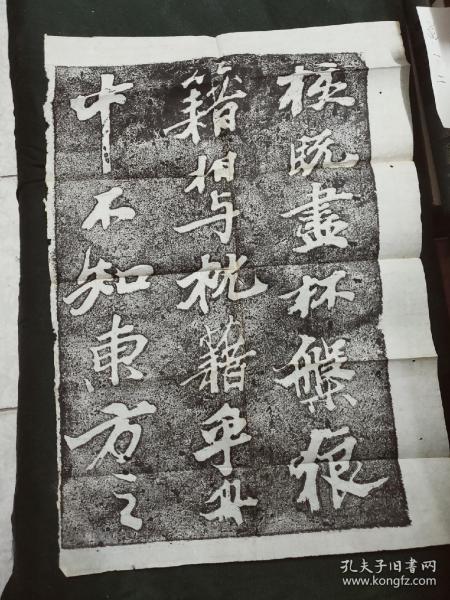 核既盡杯盤狼
籍相与枕籍乎舟
中不知東方之
孔夫子旧书网
www.kongfz.com